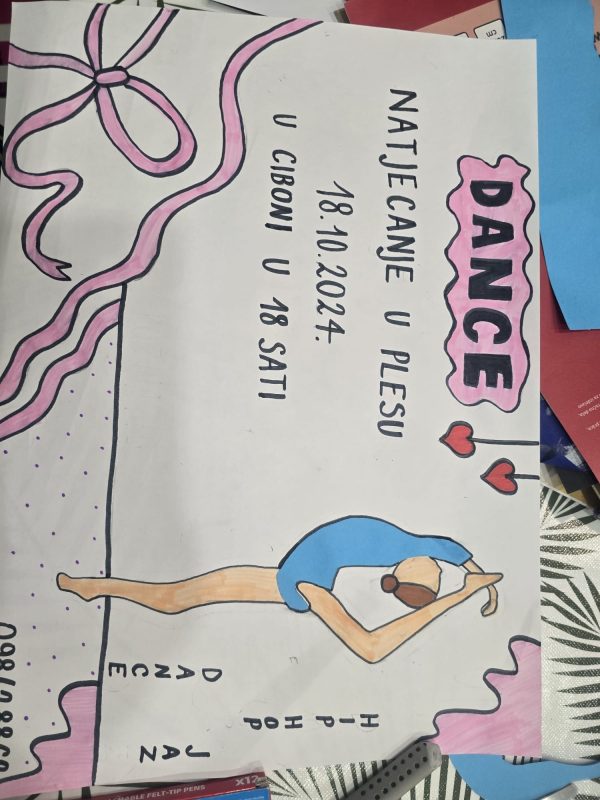 DANCE
NATJECANJE U PLESU
18.10.2024.
U CIBONI U 18 SATI
HIP
HOP
DANCE
JAZ
X12
ABLE FELT-TIP PENS
cm